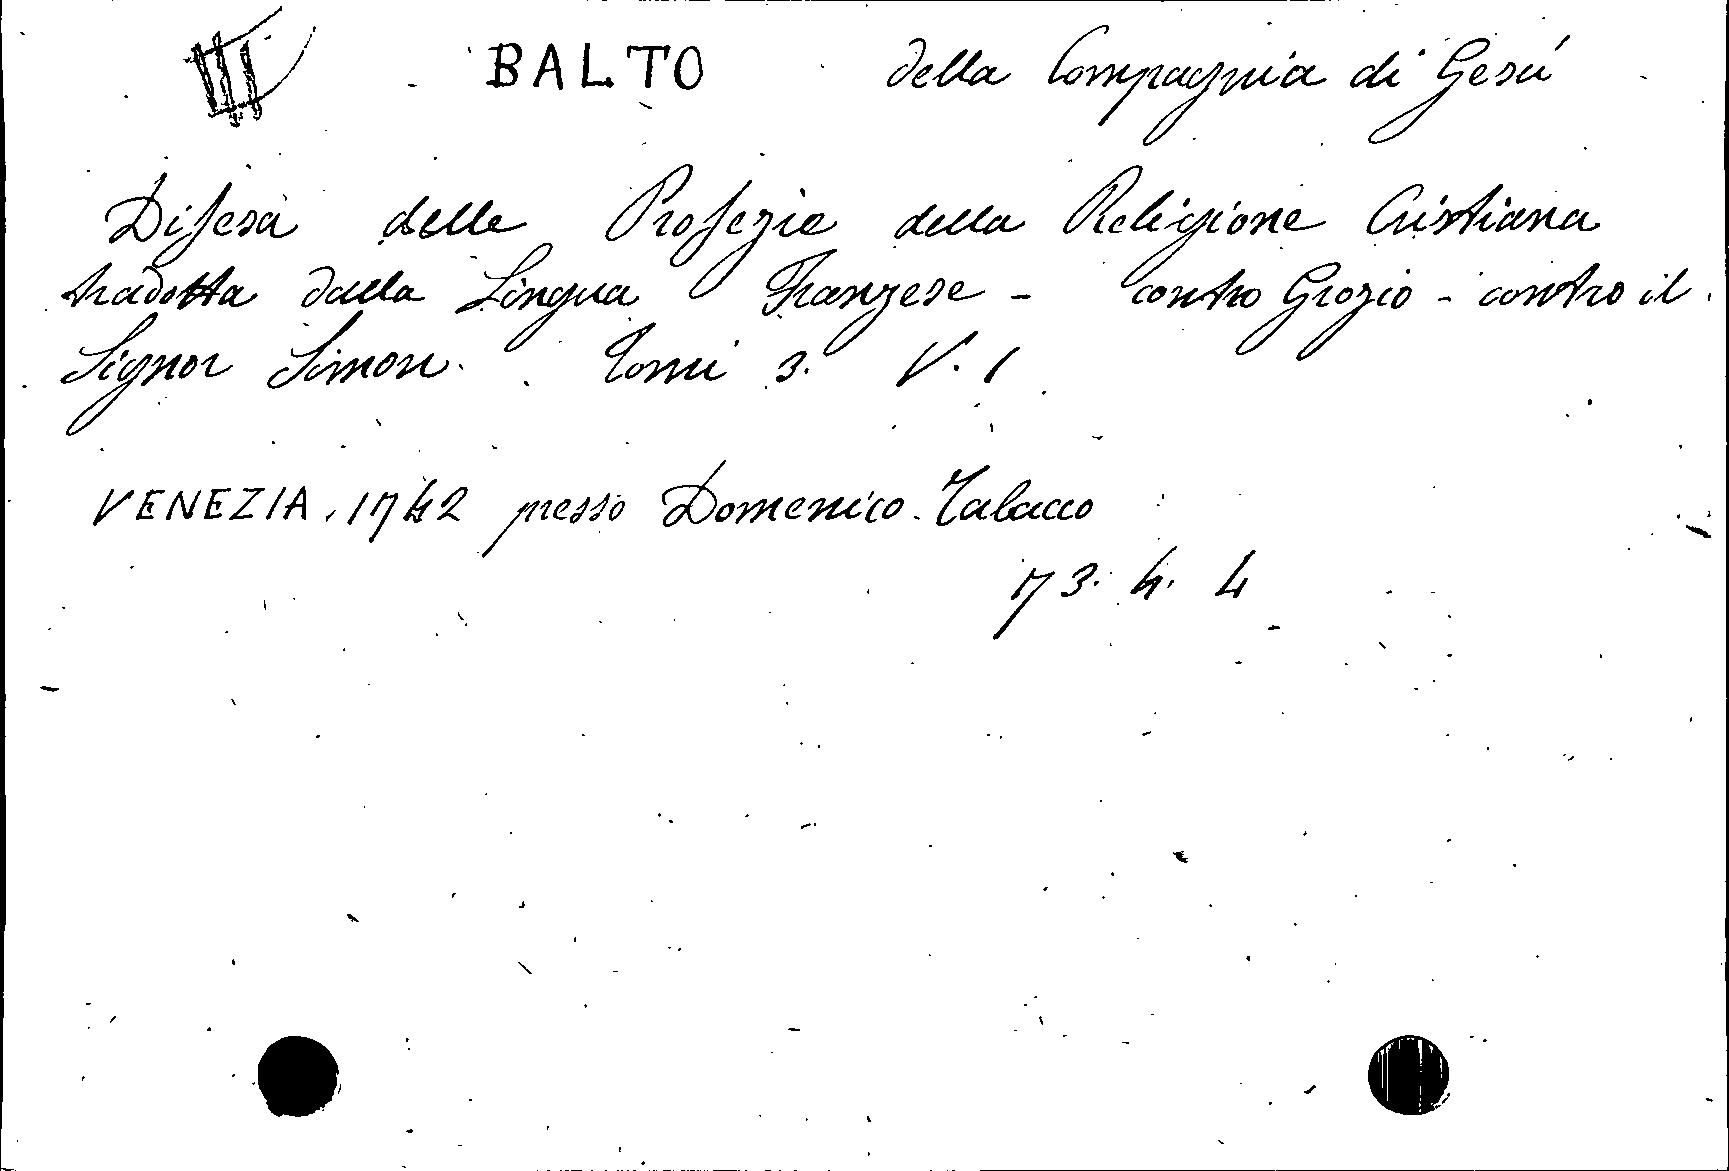 III BALTO della Compagnia di Gesù
Difesa delle Profezie della Religione Cristiana
tradotta dalla Lingua Franzese - contro Grozio - contro il
Signor Simon. Tomi 3. V. 1
VENEZIA, 1742 presso Domenico Tabacco
73. 4. 4